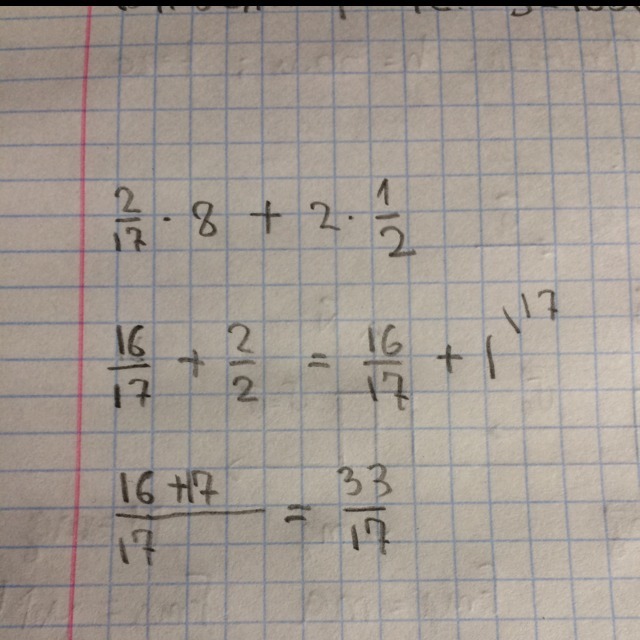 2/17 · 8 + 2 · 1/2
16/17 + 2/2 = 16/17 + 1 \17
16+17/17 = 33/17